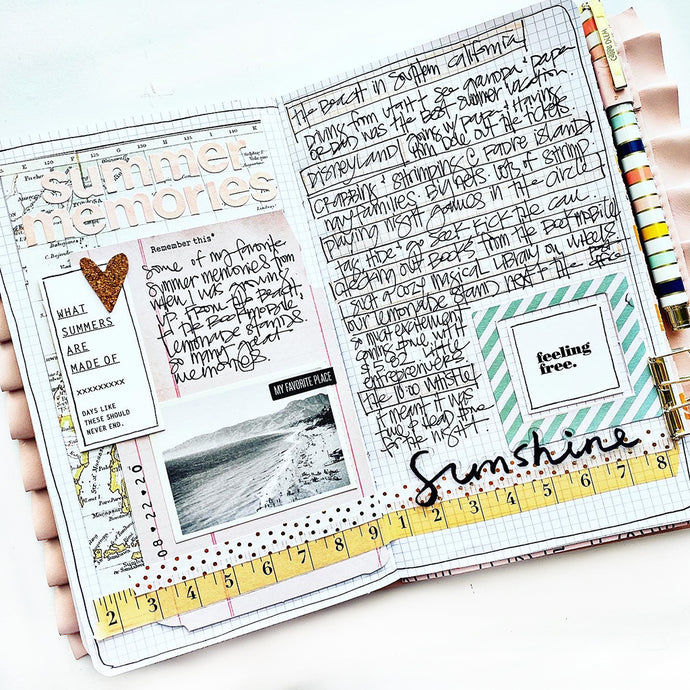 summer
memories
WHAT
SUMMERS
ARE
MADE OF
xxxxxxxxx
DAYS LIKE
THESE SHOULD
NEVER END.
Remember this*
some of my favorite
summer memories from
when I was growing
up. From the Beach,
to the Bookmobile,
lemonade stands
so many great
memories.
MY FAVORITE PLACE
08-22-20
2 3 4 5 6 7 8 9
the Beach in southern california
Driving from Utah to see grandpa + papa
was the Best summer vacation.
Disneyland going w/ papa + Having
Him Dole out the tickets
crabbing + shrimping @ padre island
my families. Buckets. lots of shrimp
playing night games in the circle
tag, hide + go seek, kick the can
checking out Books from the Bookmobile
such a cozy magical library on wheels
our lemonade stand next to the
so much excitement
coming true with
little
entrepreneurs
the 10:00 whistle
meant it was
time to head
for the night
feeling
free.
sunshine
1 2 3 4 5 6 7 8
CARPE DIEM